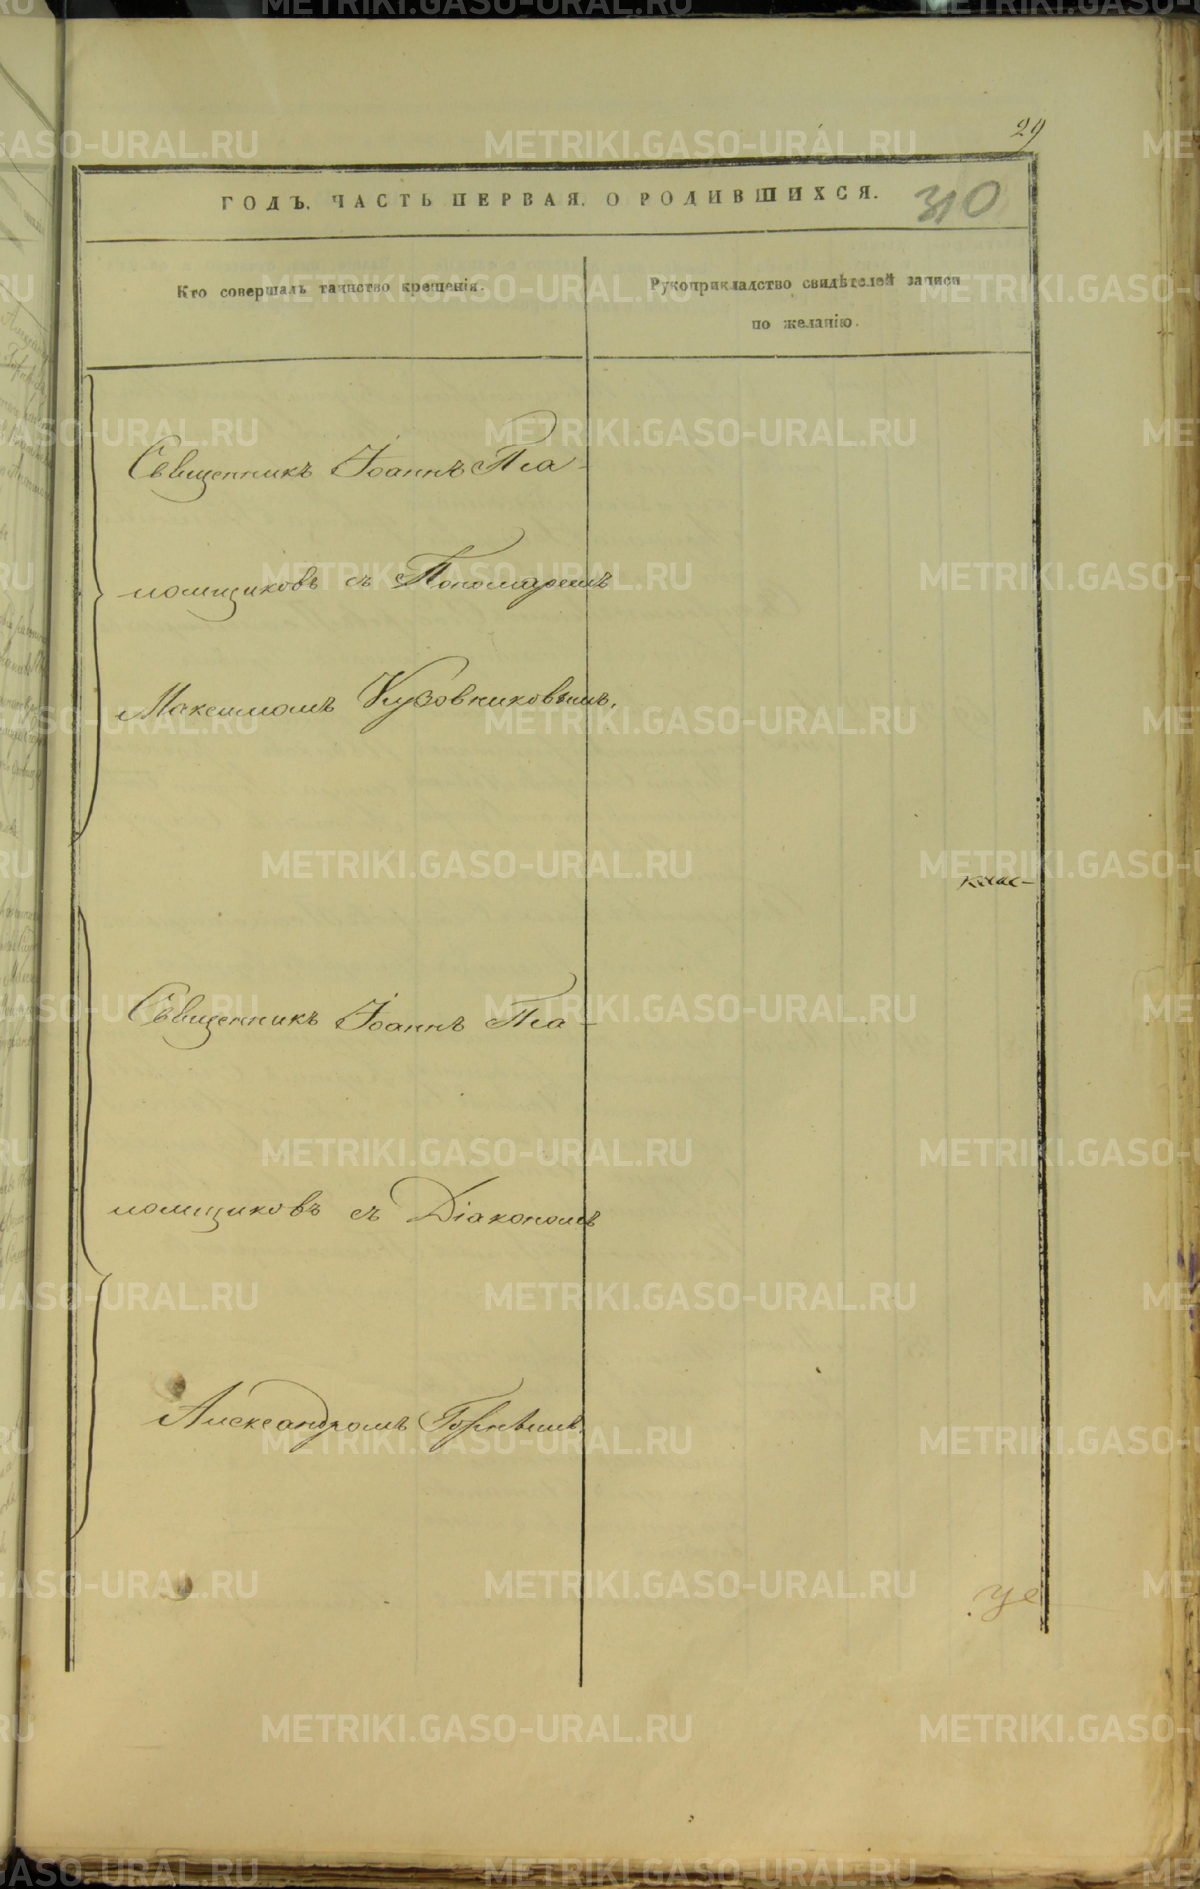 29
ГОДЪ. ЧАСТЬ ПЕРВАЯ. О РОДИВШИХСЯ.
310
Кто совершалъ таинство крещенія.
Рукоприкладство свидѣтелей записи
по желанію.
Священникъ Іоаннъ Пла-
помщиковъ съ Пономаремъ
Максимомъ Кузовниковымъ.
Священникъ Іоаннъ Пла-
помщиковъ съ Діакономъ
Александромъ
METRIKI.GASO-URAL.RU